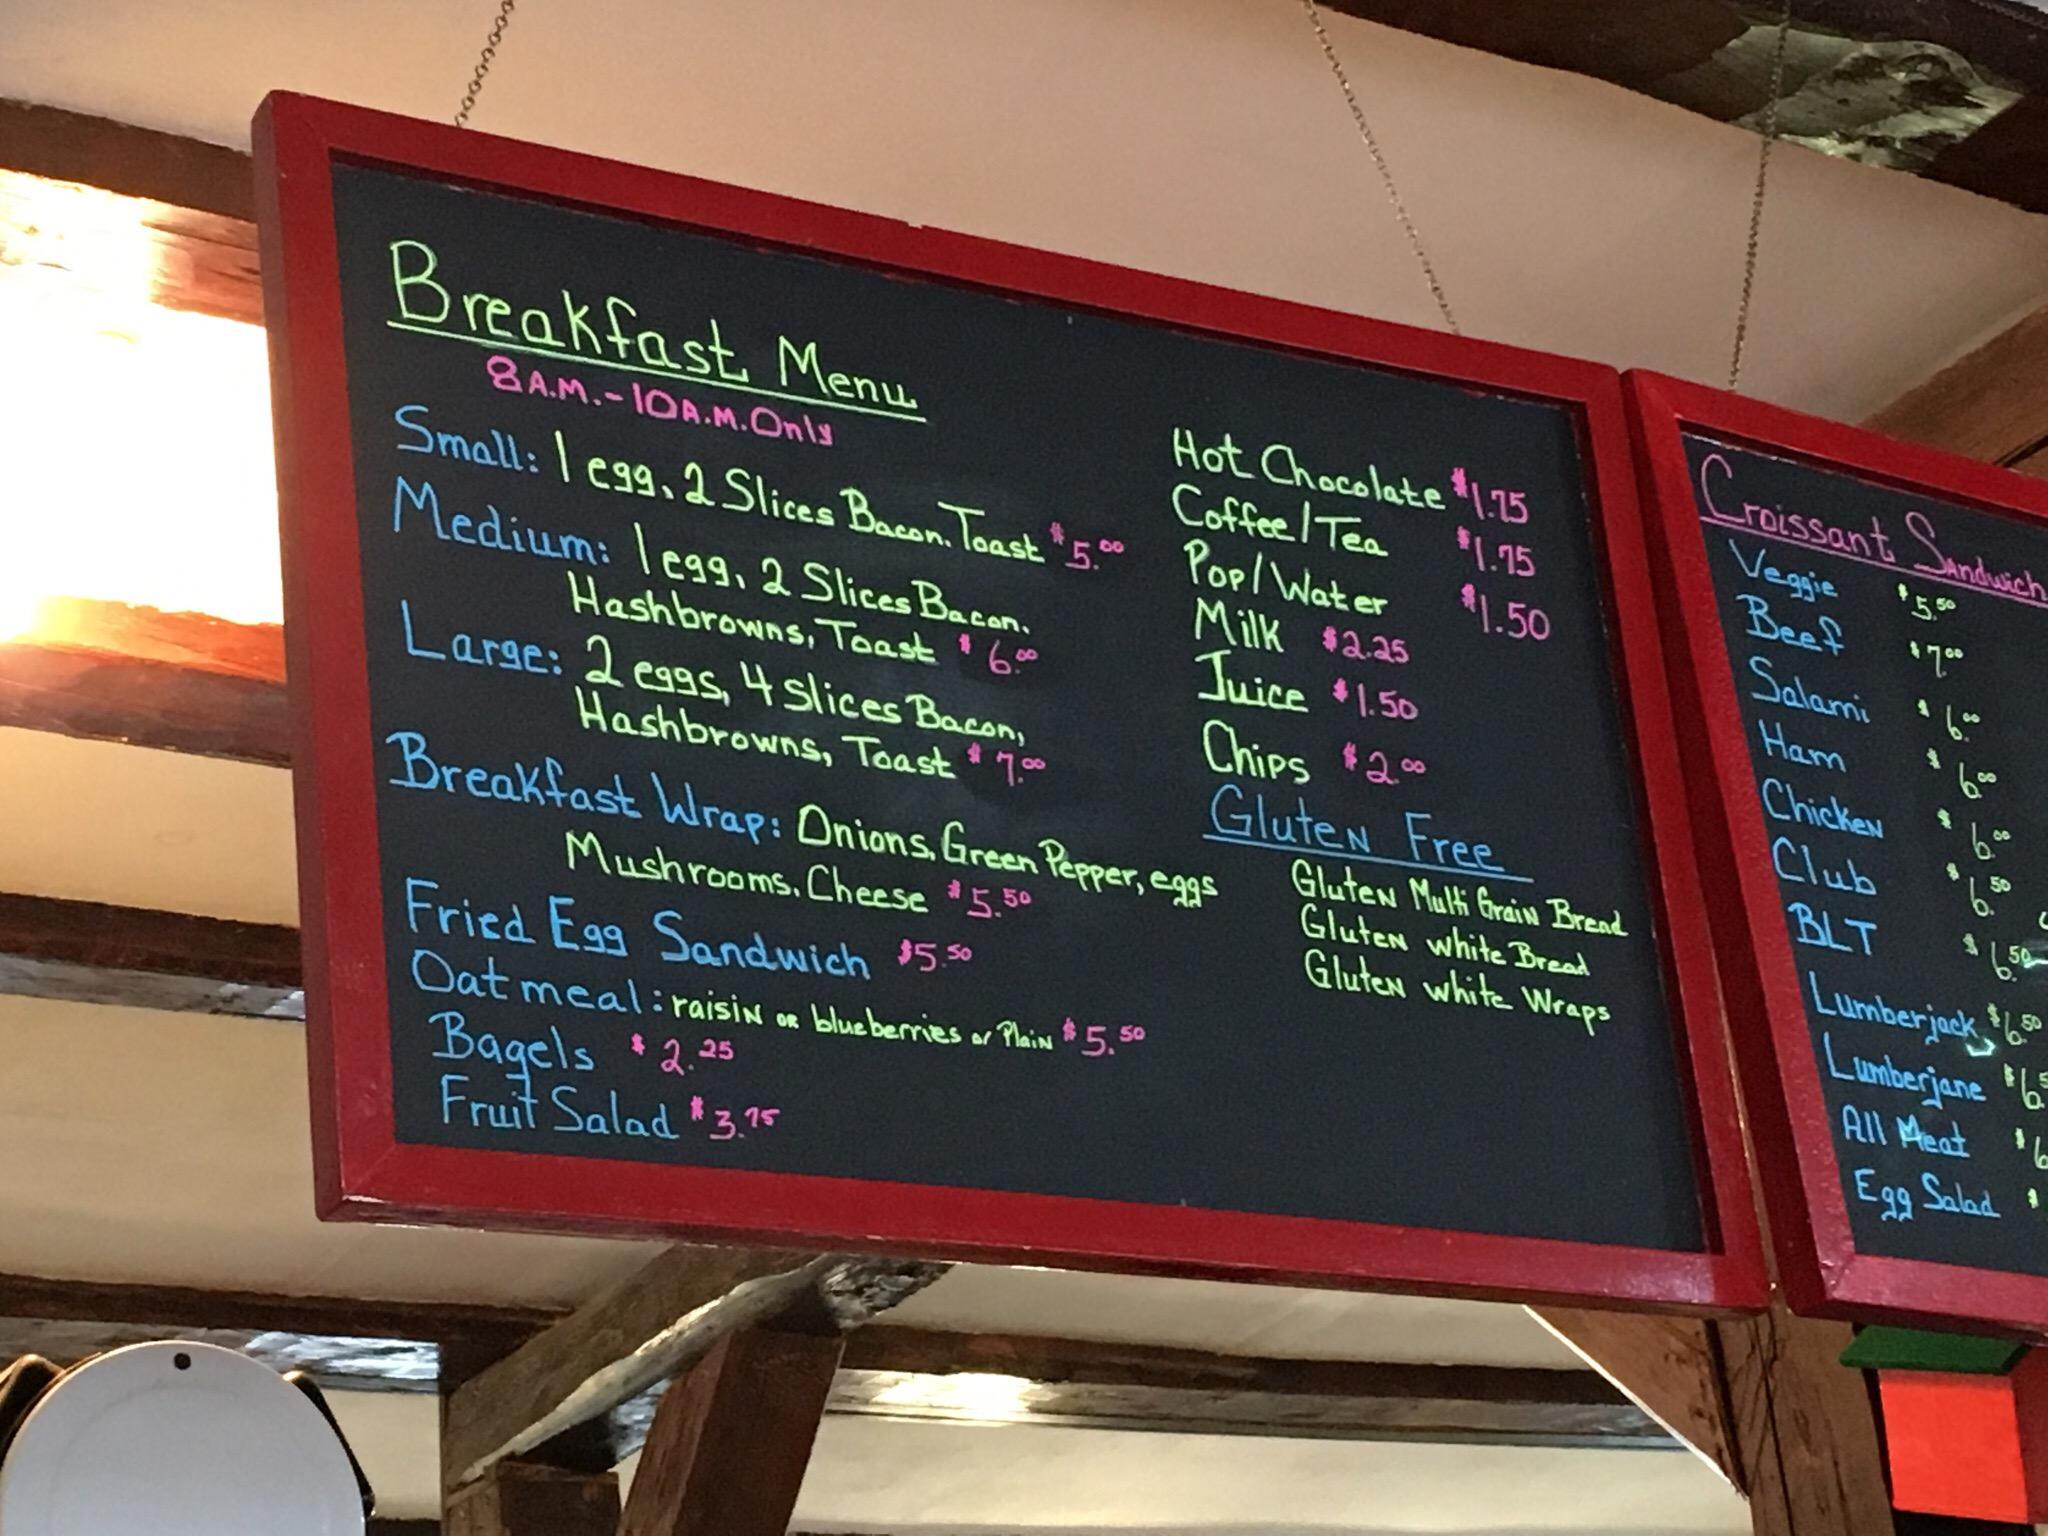 Breakfast Menu
8A.M.-10A.M. Only
Small: 1 egg, 2 Slices Bacon. Toast $5.00
Medium: 1 egg, 2 Slices Bacon.
Hashbrowns, Toast $6.00
Large: 2 eggs, 4 slices Bacon,
Hashbrowns, Toast $7.00
Breakfast Wrap: Onions, Green Pepper, eggs
Mushrooms. Cheese $5.50
Fried Egg Sandwich $5.50
Oatmeal: raisin or blueberries or Plain $5.50
Bagels $2.25
Fruit Salad $3.75
Hot Chocolate $1.75
Coffee/Tea $1.75
Pop/Water $1.50
Milk $2.25
Juice $1.50
Chips $2.00
Gluten Free
Gluten Multi Grain Bread
Gluten white Bread
Gluten white Wraps
Croissant Sandwich
Veggie $5.50
Beef $7.00
Salami $6.00
Ham $6.00
Chicken $6.00
Club $6.50
BLT $6.50
Lumberjack $6.50
Lumberjane $6.5
All Meat $6
Egg Salad $